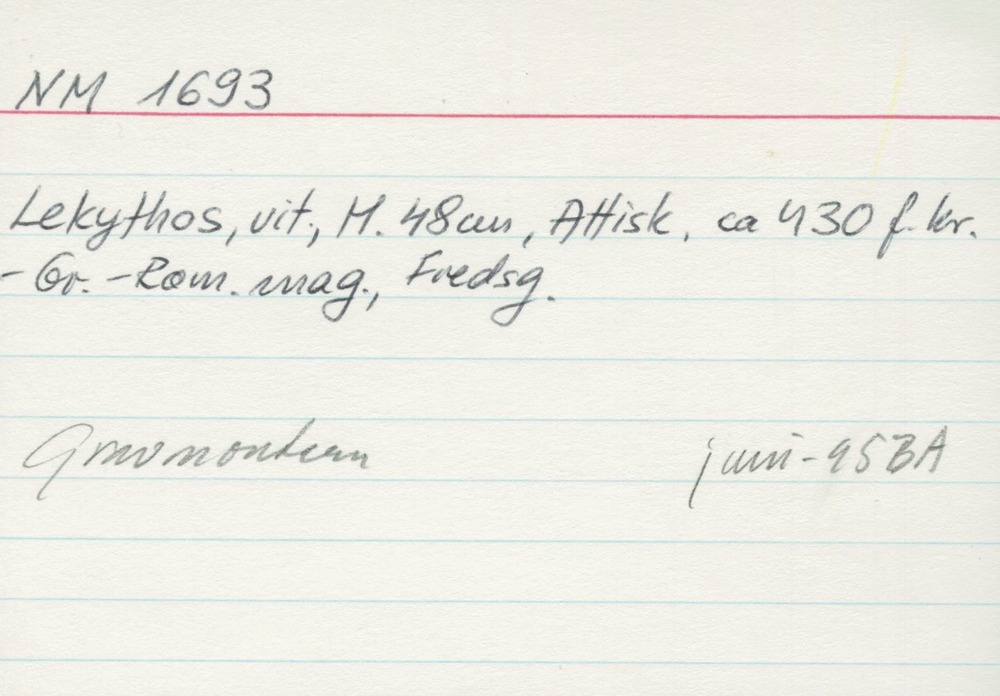 NM 1693
Lekythos, vit, H. 48cm, Attisk, ca 430 f. kr.
- Gr. - Rom. mag., Fredsg.
juni - 95 BA